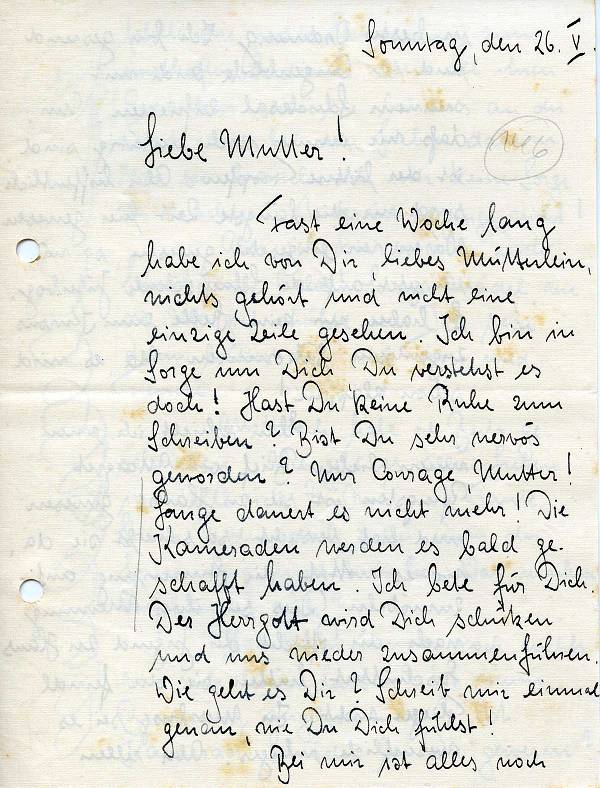 Sonntag, den 26. V.
Liebe Mutter!
Fast eine Woche lang
habe ich von Dir, liebes Mütterlein,
nichts gehört und nicht eine
einzige Zeile gesehen. Ich bin in
Sorge um Dich Du verstehst es
doch! Hast Du keine Ruhe zum
Schreiben? Bist Du sehr nervös
geworden? Nur Courage Mutter!
Lange dauert es nicht mehr! Die
Kameraden werden es bald ge-
schafft haben. Ich bete für Dich.
Der Herrgott wird Dich schützen
und uns wieder zusammenführen.
Wie geht es Dir? Schreib mir einmal
genau, wie Du Dich fühlst!
Bei mir ist alles noch